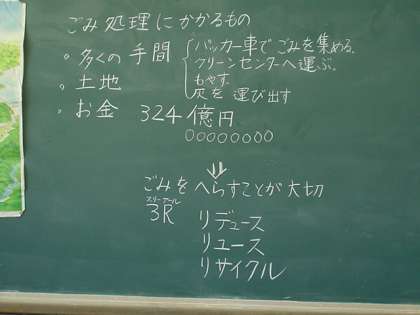 ごみ処理にかかるもの
。多くの手間 パッカー車でごみを集める。
クリーンセンターへ運ぶ。
もやす。
灰を運び出す
。土地
。お金 324億円
00000000
⇓
ごみをへらすことが大切
スリーアール
3R リデュース
リユース
リサイクル